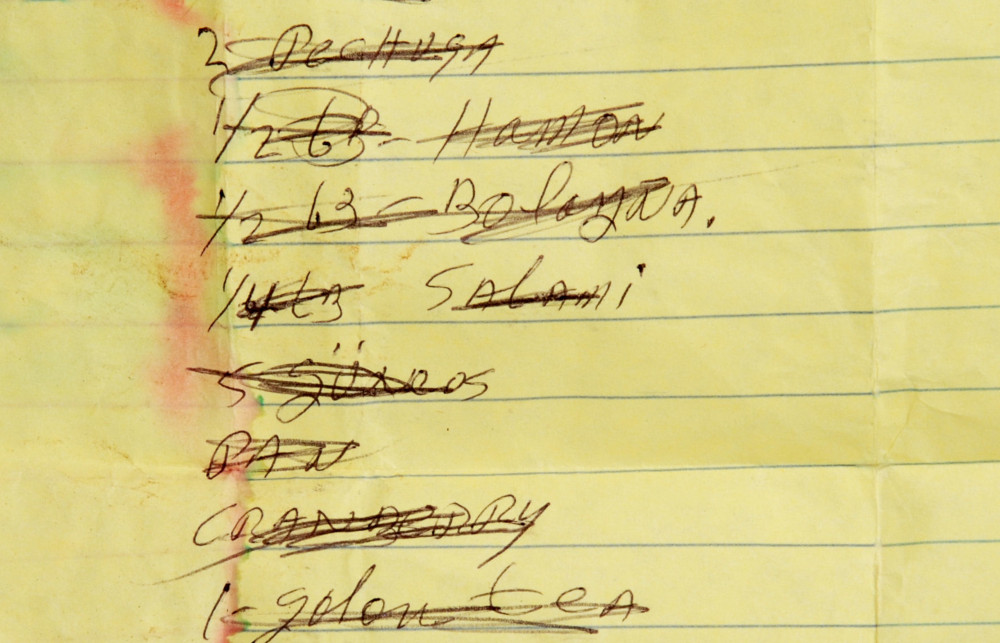 2 PecHuga
1/2 LB - Hamon
1/2 LB - Bolagña.
1/4 LB Salami
5 Güineos
PAN
CRANBERRY
1 - golon tea